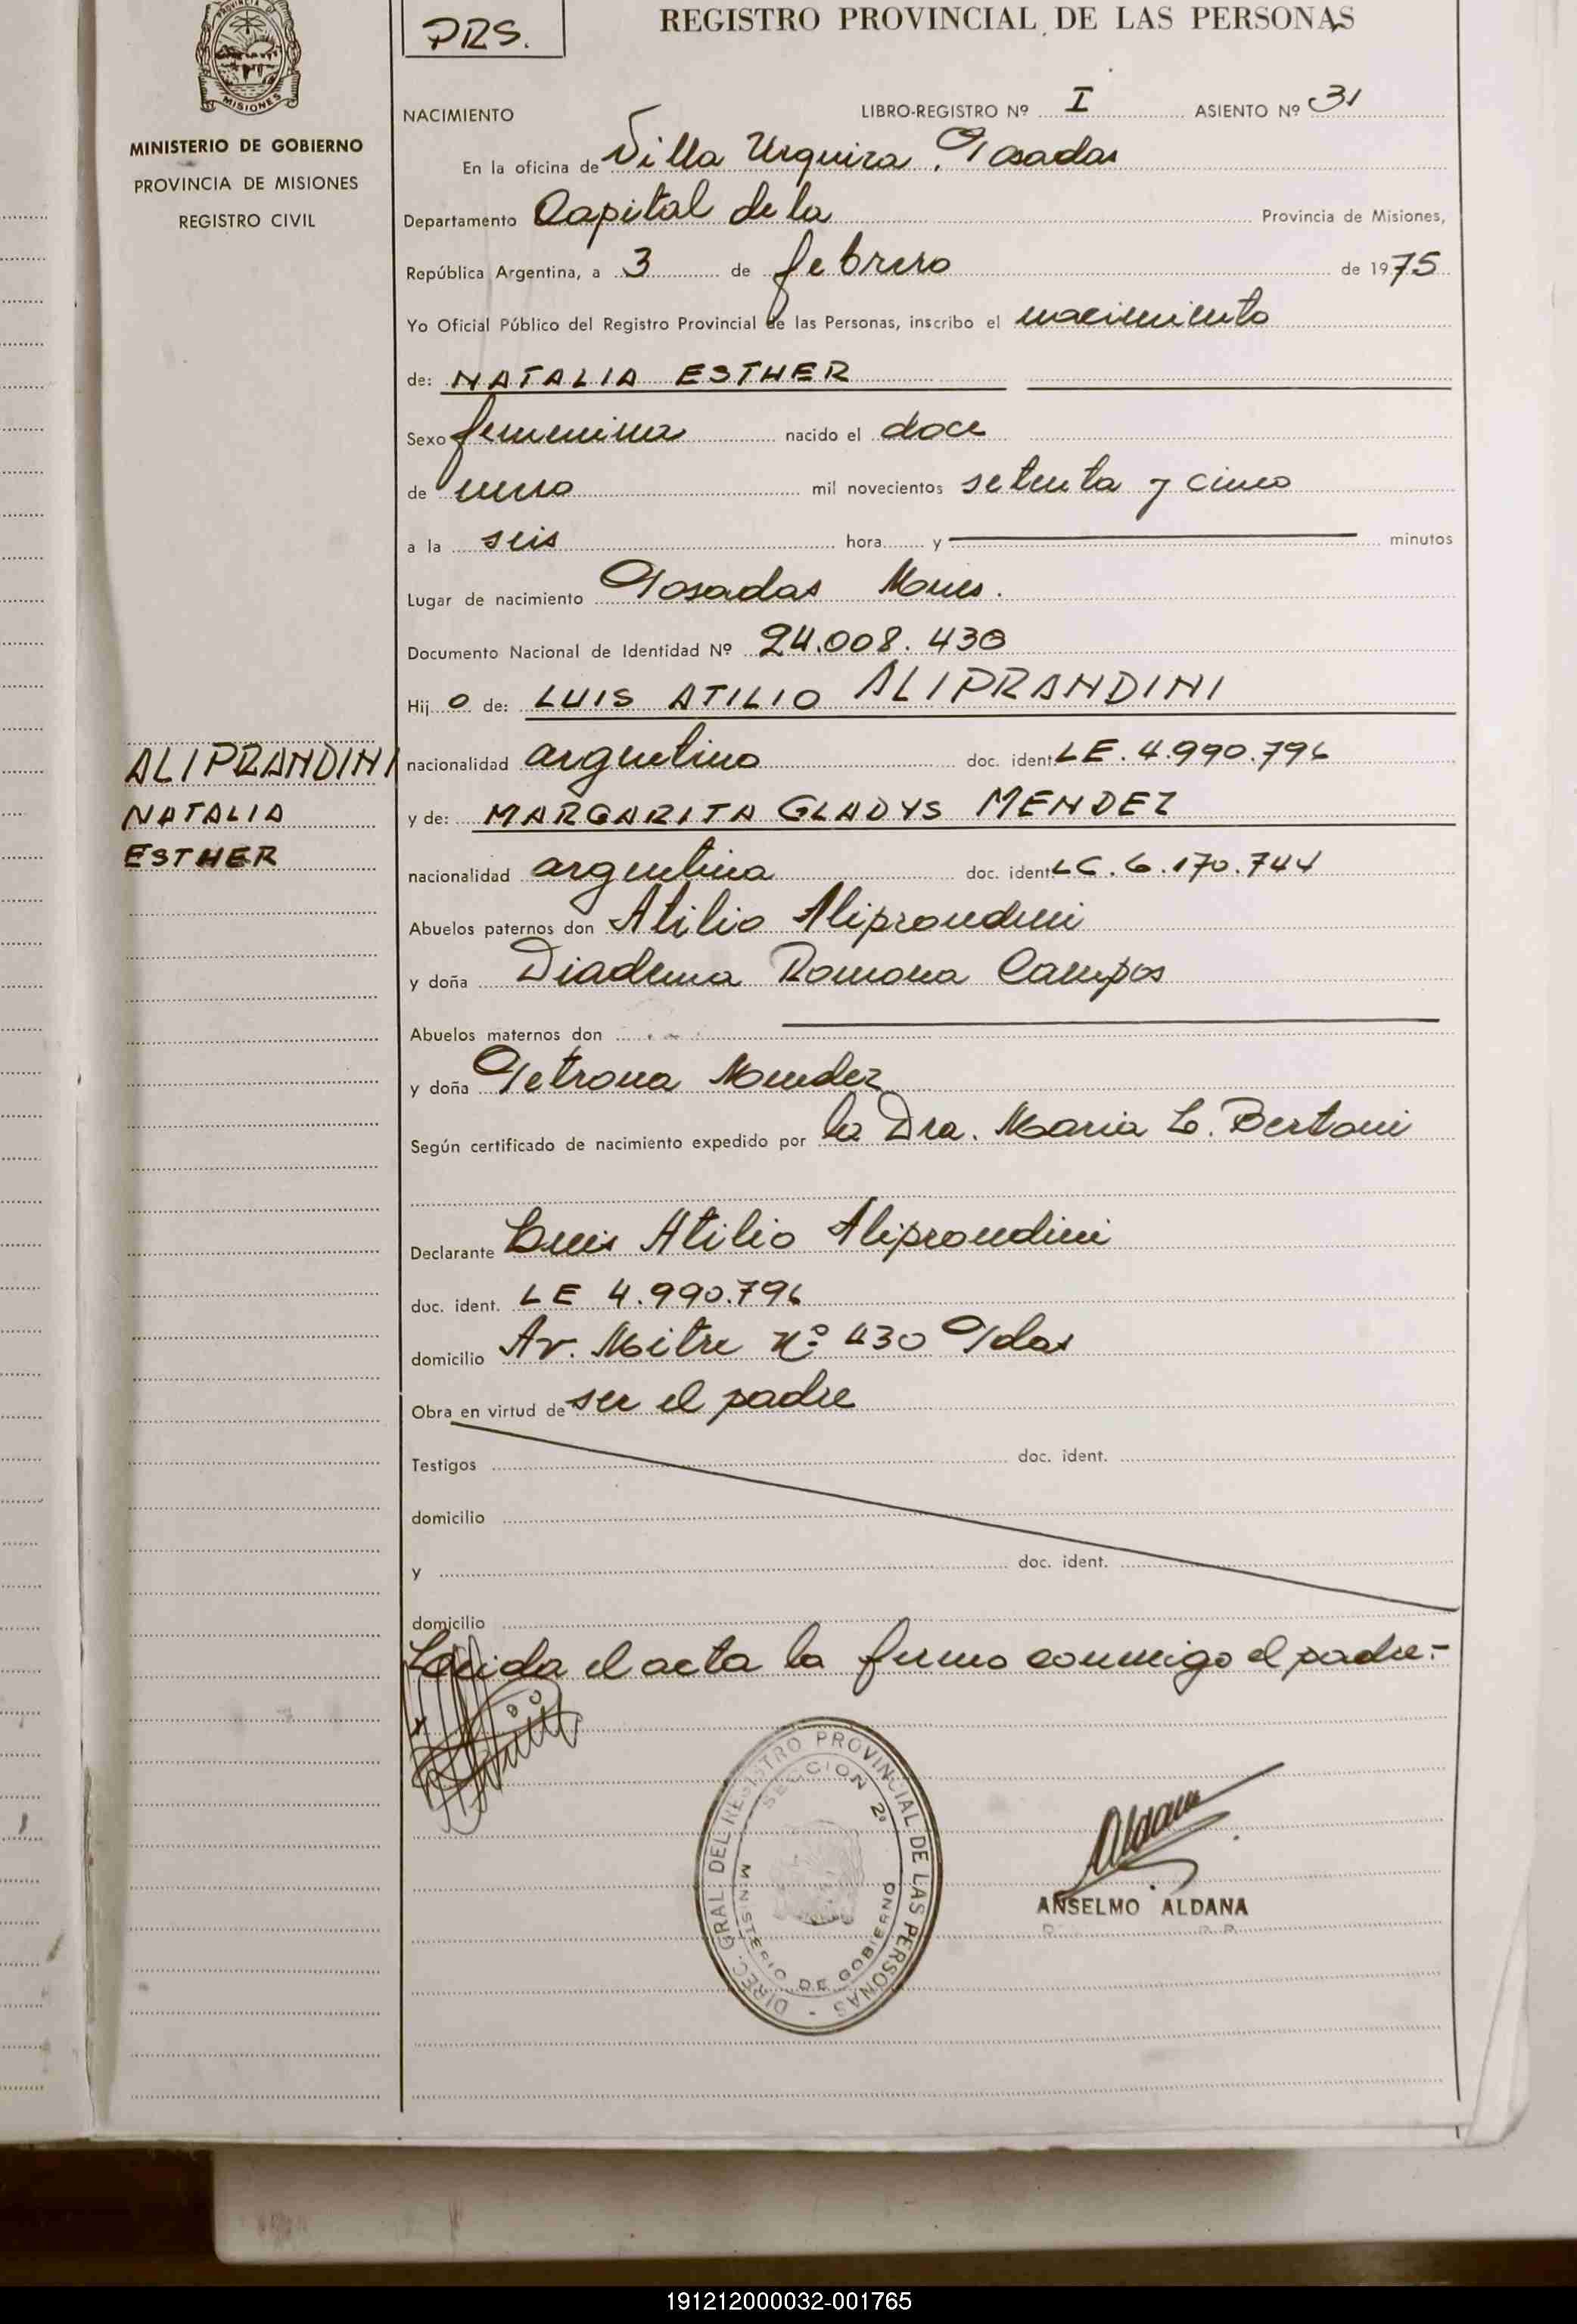 PRS.
REGISTRO PROVINCIAL DE LAS PERSONAS
MISIONES
MINISTERIO DE GOBIERNO
PROVINCIA DE MISIONES
REGISTRO CIVIL
NACIMIENTO LIBRO-REGISTRO Nº I ASIENTO Nº 31
En la oficina de Villa Urquiza, Posadas
Departamento Capital de la Provincia de Misiones,
República Argentina, a 3 de febrero de 1975
Yo Oficial Público del Registro Provincial de las Personas, inscribo el nacimiento
de: NATALIA ESTHER
Sexo femenina nacido el doce
de enero mil novecientos setenta y cinco
a la seis hora y minutos
Lugar de nacimiento Posadas Mnes.
Documento Nacional de Identidad Nº 24.008.430
Hij o de: LUIS ATILIO ALIPRANDINI
ALIPRANDINI
NATALIA
ESTHER
nacionalidad argentino doc. ident LE. 4.990.796
y de: MARGARITA GLADYS MENDEZ
nacionalidad argentina doc. ident LC. 6.170.744
Abuelos paternos don Atilio Aliprandini
y doña Diadema Ramona Campos
Abuelos maternos don
y doña Petrona Mendez
Según certificado de nacimiento expedido por la Dra. Maria L. Bertoni
Declarante Luis Atilio Aliprandini
doc. ident. LE 4.990.796
domicilio Av. Mitre Nº 430 Pdas
Obra en virtud de ser el padre
Testigos doc. ident.
domicilio
y doc. ident.
domicilio
Leida el acta la firma conmigo el padre.-
DIREC. GRAL. DEL REGISTRO PROVINCIAL DE LAS PERSONAS -
SECCION 2º
MINISTERIO DE GOBIERNO
Aldana
ANSELMO ALDANA
191212000032-001765